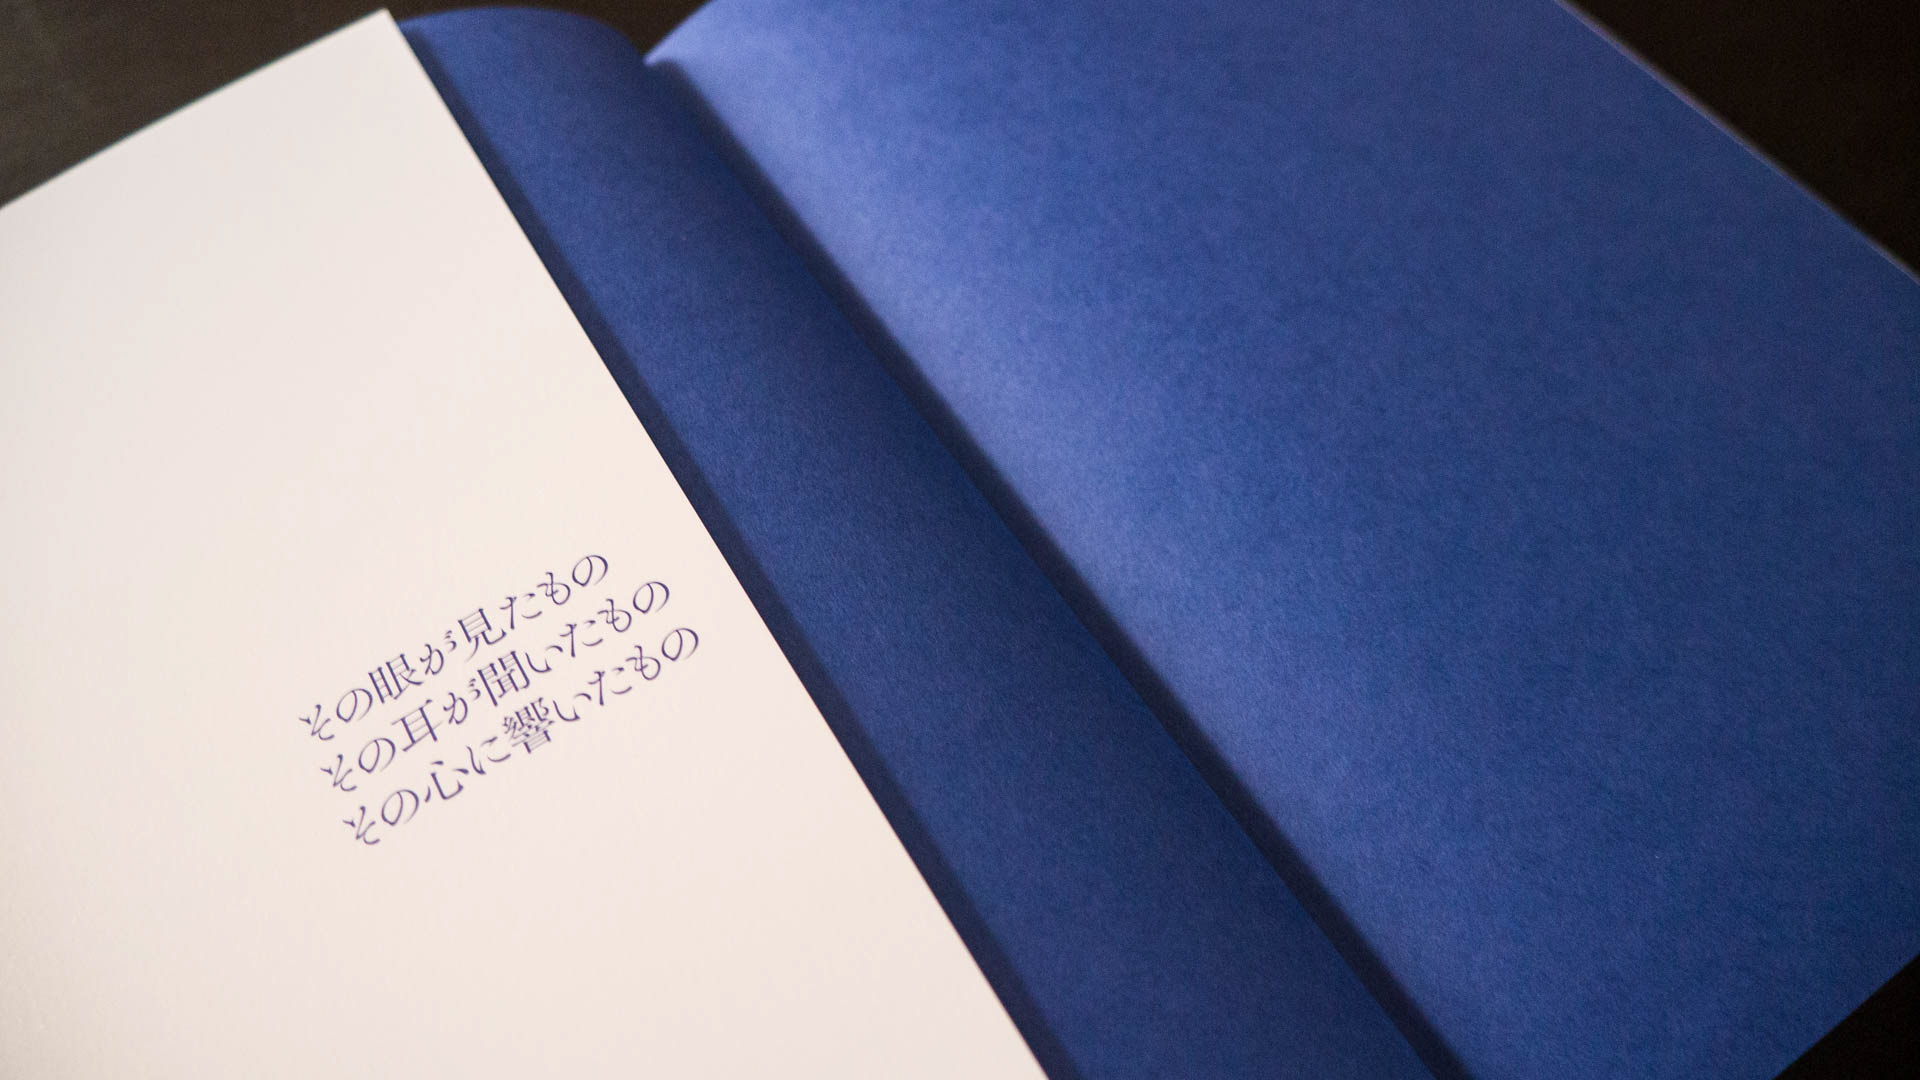 その眼が見たもの
その耳が聞いたもの
その心に響いたもの